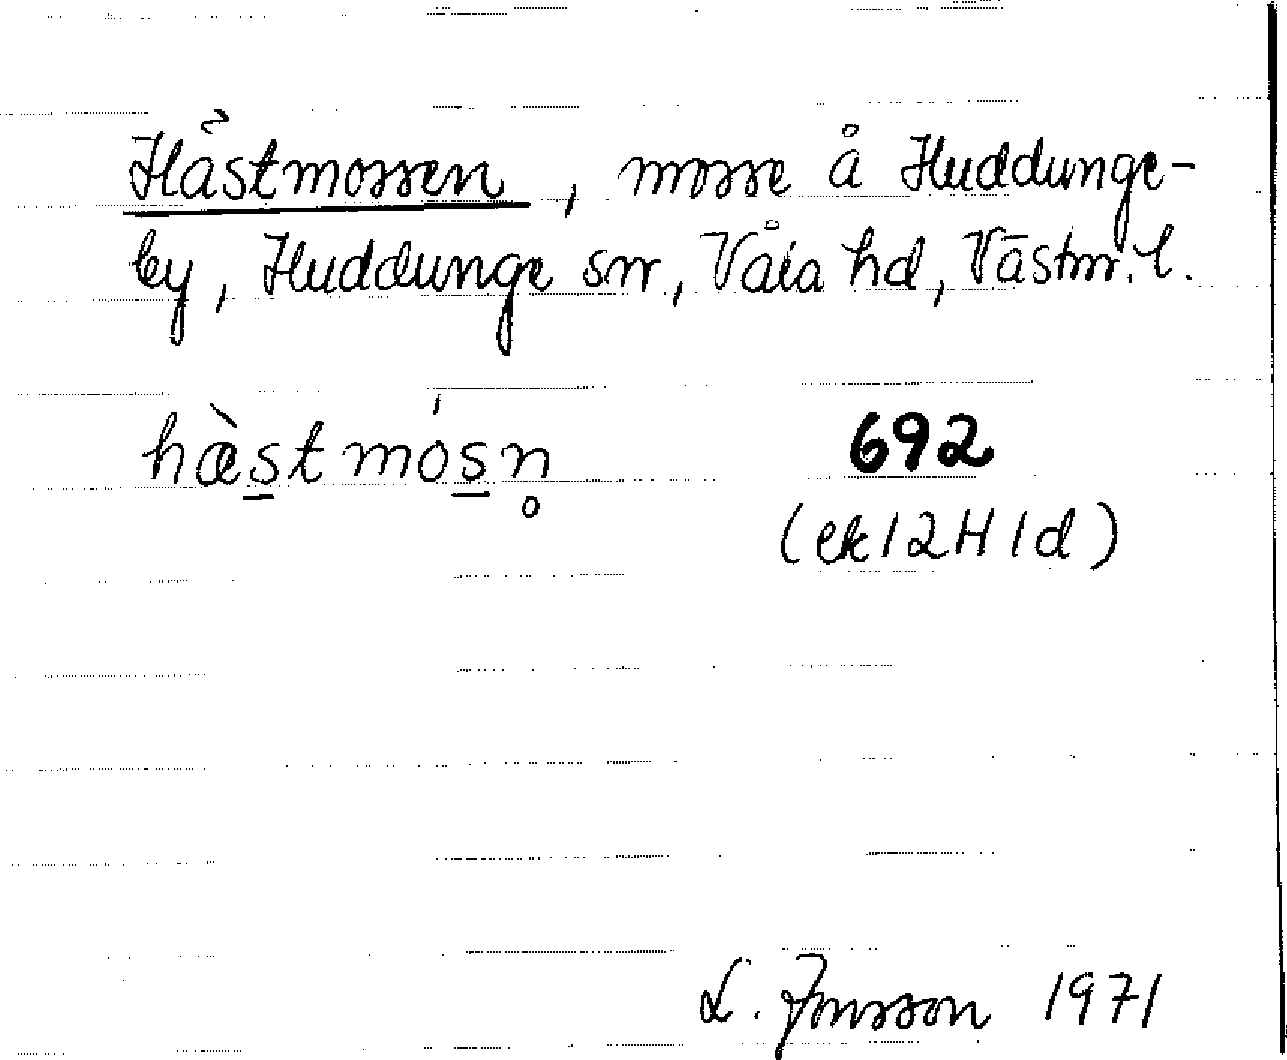 Hästmossen, mosse å Huddunge-
by, Huddunge sn, Våla hd, Västm. l.
hæ̀s̲tmós̲n̥ 692
(ek 12H 1d)
L. Jonsson 1971